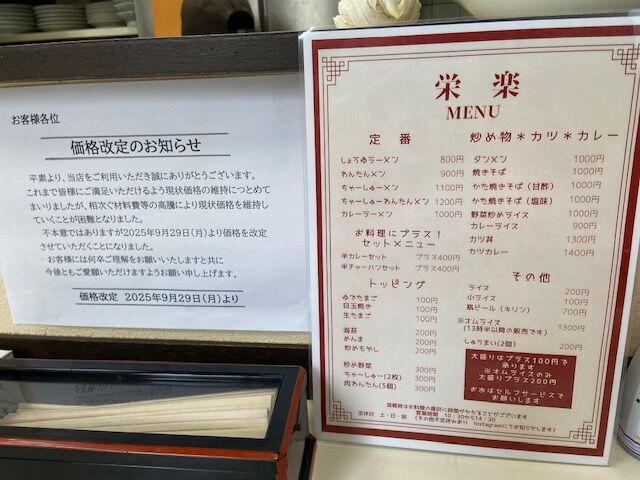 お客様各位
価格改定のお知らせ
平素より、当店をご利用いただき誠にありがとうございます。
これまで皆様にご満足いただけるよう現状価格の維持につとめて
まいりましたが、相次ぐ材料費等の高騰により現状価格を維持し
ていくことが困難となりました。
不本意ではありますが2025年9月29日(月)より価格を改定
させていただくことになりました。
お客様には何卒ご理解をお願いいたしますと共に
今後ともご愛願いただけますようお願い申し上げます。
価格改定 2025年9月29日(月)より
栄楽
MENU
定番
しょうゆラーメン 800円
わんたんメン 900円
ちゃーしゅーメン 1100円
ちゃーしゅーわんたんメン 1200円
カレーラーメン 1000円
お料理にプラス!
セットメニュー
半カレーセット プラス400円
半チャーハンセット プラス400円
トッピング
ゆでたまご 100円
目玉焼き 100円
生たまご 100円
海苔 200円
めんま 200円
炒めもやし 200円
炒め野菜 300円
ちゃーしゅー(2枚) 300円
肉わんたん(5個) 300円
炒め物*カツ*カレー
タンメン 1000円
焼きそば 1000円
かた焼きそば(甘酢) 1000円
かた焼きそば(塩味) 1000円
野菜炒めライス 1000円
カレーライス 900円
カツ丼 1300円
カツカレー 1400円
その他
ライス 200円
小ライス 100円
瓶ビール(キリン) 700円
※オムライス 1300円
(13時半以降の販売です)
しゅうまい(2個) 200円
大盛りはプラス100円で
承ります
※オムライスのみ
大盛りプラス200円
お水はセルフサービスで
お願いします
混雑時はお料理の提供に時間がかかることがございます
営業時間 10:30から14:30
定休日 土・日・祝 (その他不定休みあり Instagramにてお知らせします)